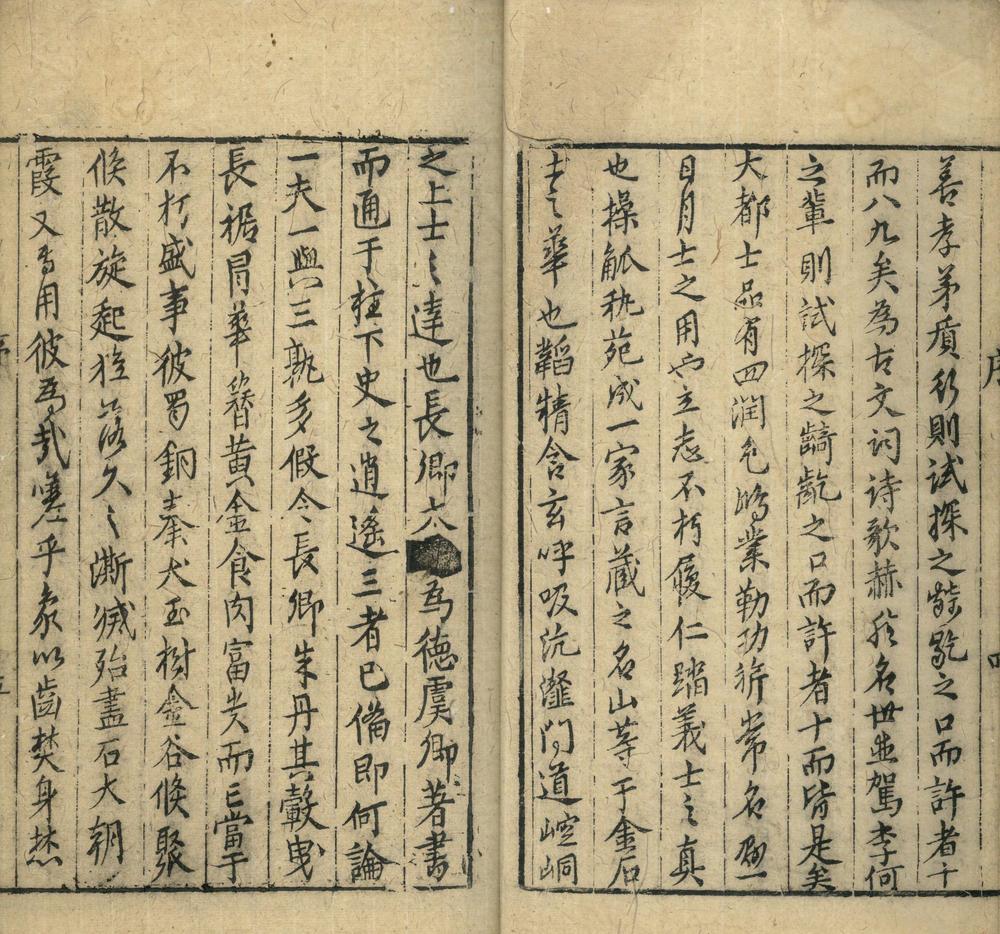 序
四
善孝茅質行則試探之齮齕之口而許者十
而八九矣為古文詞詩歌赫然名世並駕李何
之輩則試探之齮齕之口而許者十而皆是矣
大都士品有四潤色鴻業勒功旂常名與
日月士之用也立志不朽履仁蹈義士之真
也操觚秇苑成一家言藏之名山等于金石
士之華也韜精含玄呼吸沆瀣門道崆峒
之上士之達也長卿六為德虞卿著書
而通于柱下史之逍遙三者已備即何論
一夫一與三孰多假令長卿朱丹其轂曳
長裾冐華簪黃金食肉富貴而已當于
不朽盛事彼蜀銅秦犬玉樹金谷倏聚
倏散旋起旋落久之澌滅殆盡石火朝
霞又焉用彼為哉嗟乎象以齒焚身
序
五